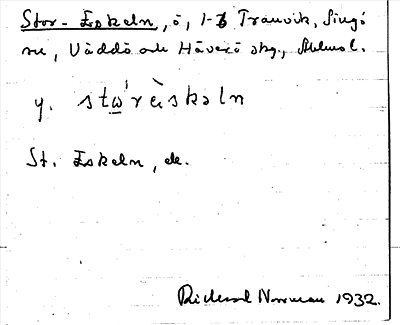 Stor-Eskeln, ö, 1-3 Tranvik, Singö
sn, Väddö och Häverö skg., Sthms l.
y. stώ̲rèiskəln
St. Eskeln, ek.
Rickard Norrman 1932.